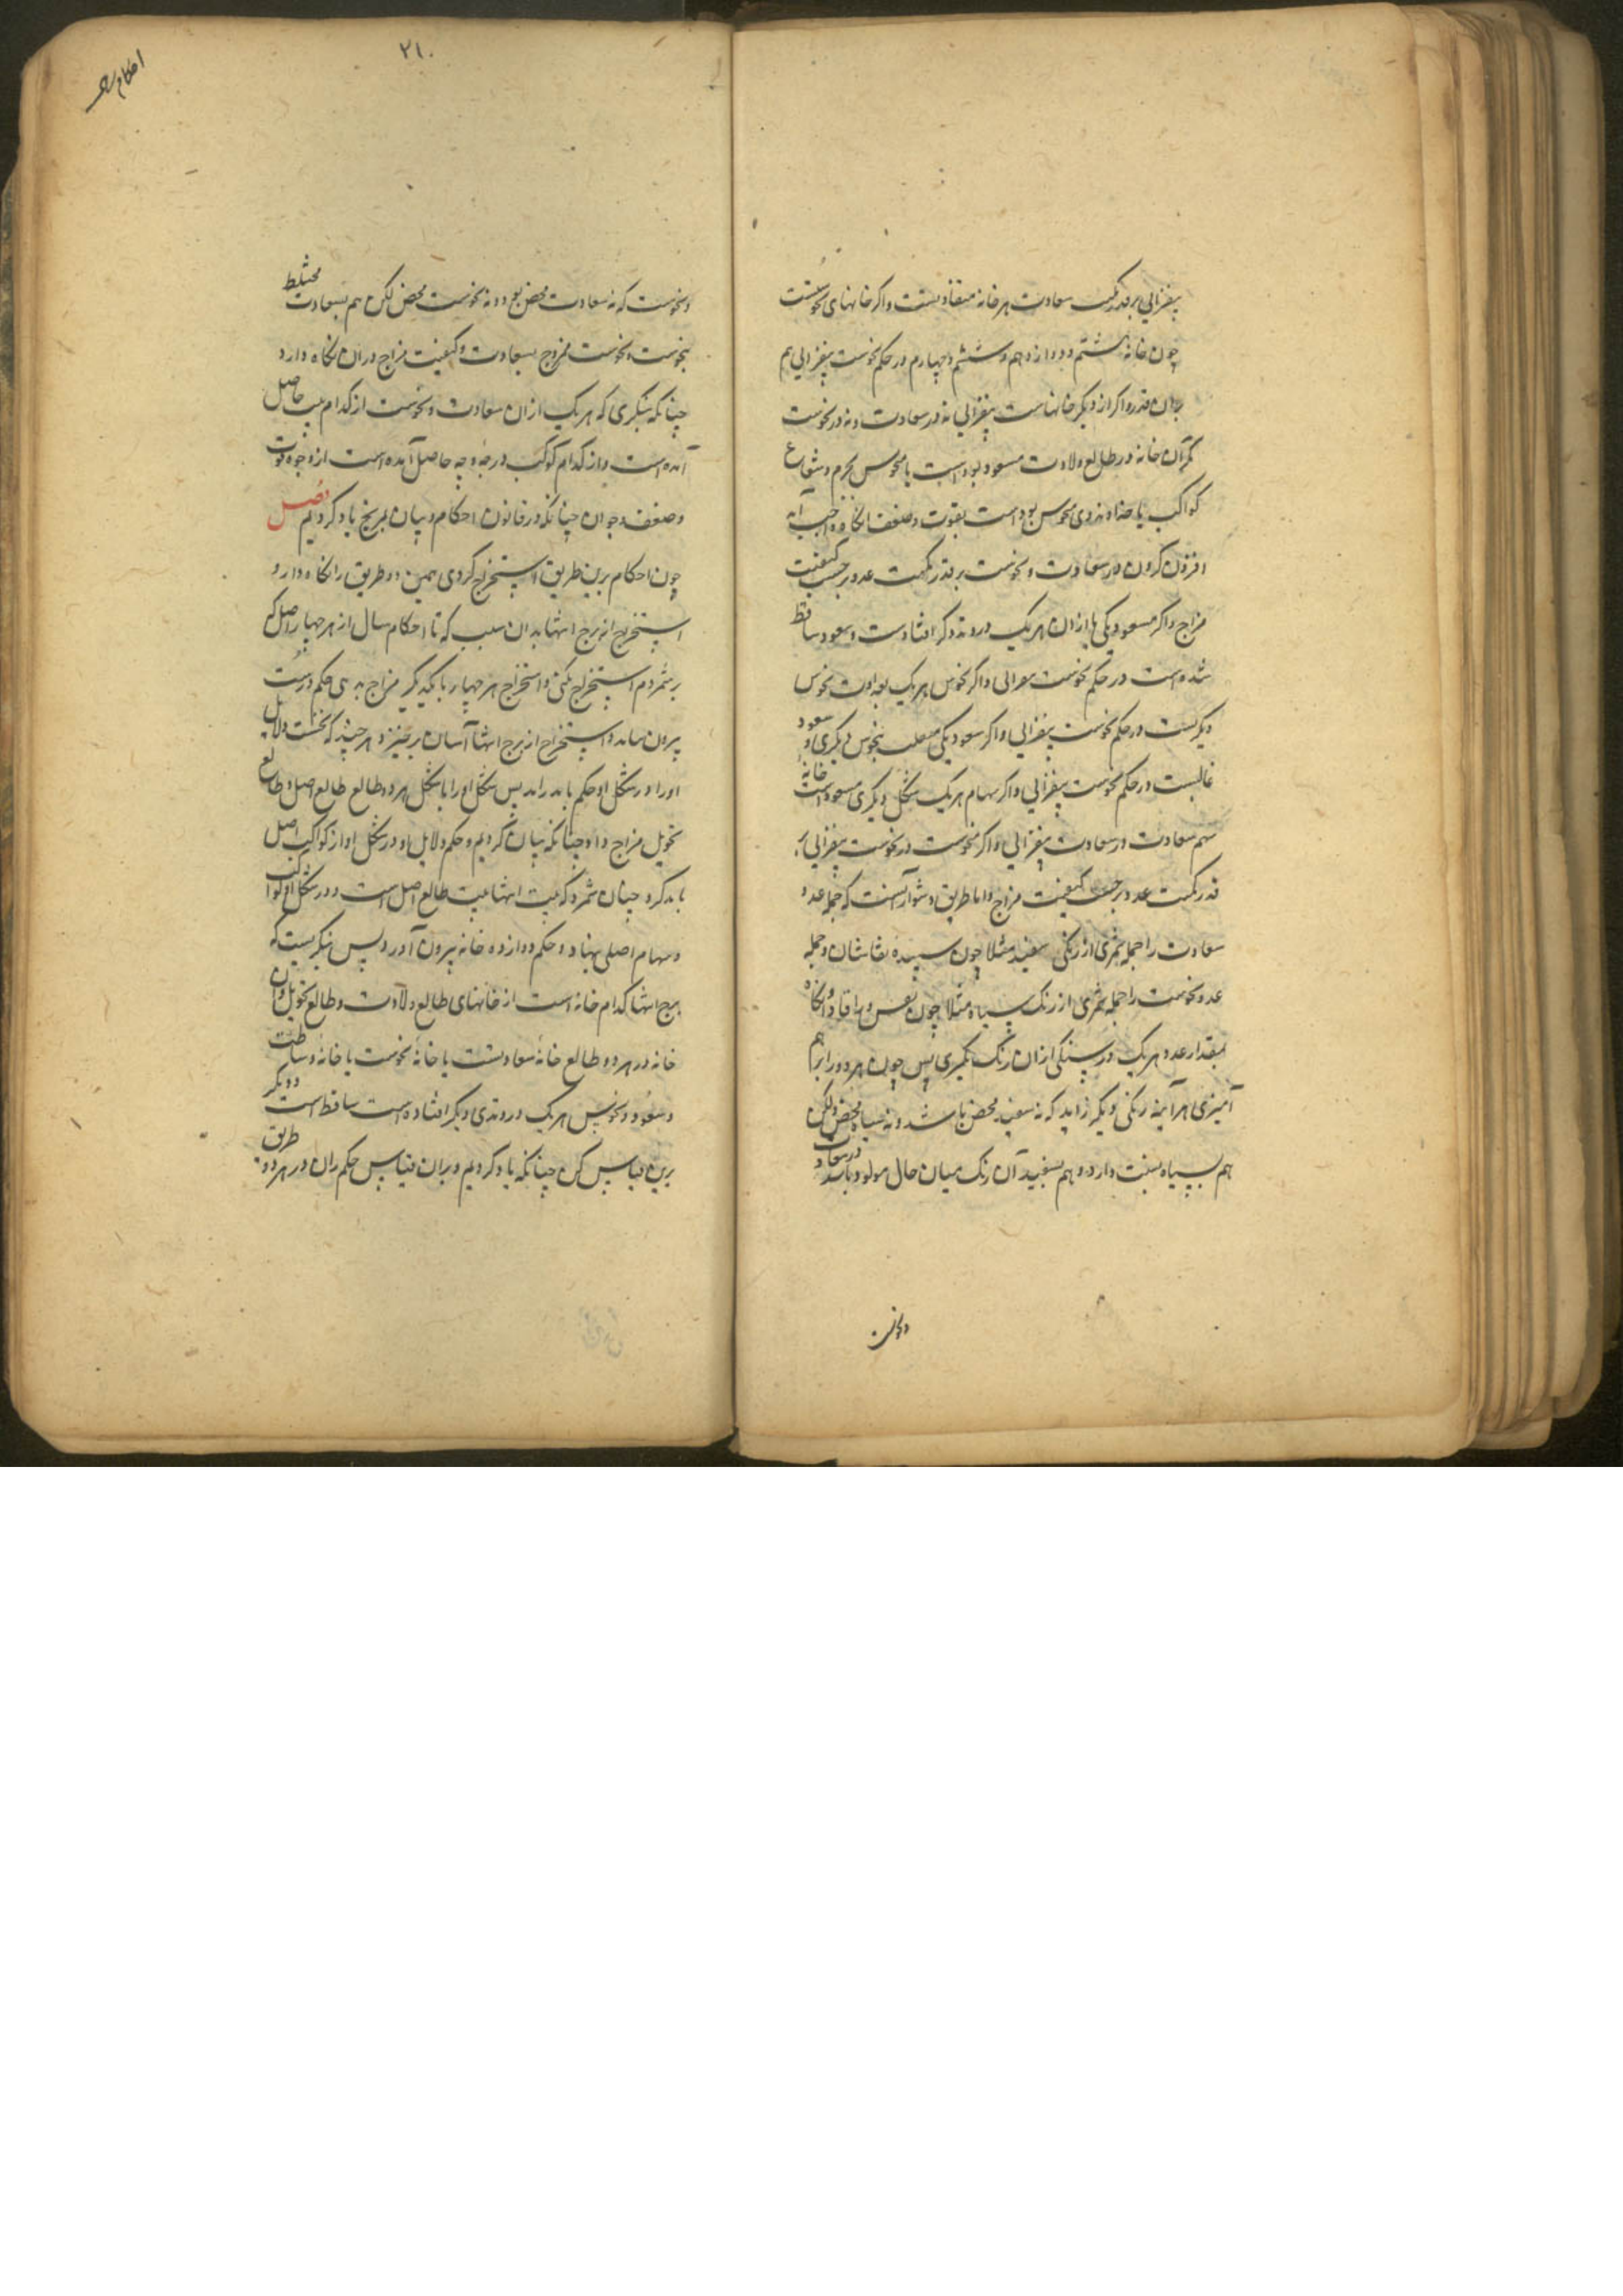 بیفزایی بر قدر کمیت سعادت هر خانه متفاوتست و اگر خانهای نحوست
چون خانه هشتم و دوازدهم و ششم و چهارم در حکم نحوست بیفزایی هم
بران قدر و اگر از دیگر خانهاست بیفزایی نه در سعادت و نه در نحوست
مگر آن خانه در طالع ولادت مسعود بوده است یا منحوس بجرم و شعاع
کواکب یا خداوندوی منحوس بوده است بقوت و ضعف انگاه واجب آید
افزون کردن در سعادت و نحوست بر قدر کمیت عدد بر حسب کیفیت
مزاج و اگر مسعود یکی یا ازان هر یک در وتد دگر افتادست و سعود ساقط
شده است در حکم نحوست و اگر نحوس هر یک نحوس
دیگرست در حکم نحوست بیفزایی و اگر سعود یکی بنحوس دیگری و سعود
غالبست در حکم نحوست بیفزایی و اگر سهام هر یک بشکل دیگری مسعود است خانه
سهم سعادت در سعادت بیفزایی و اگر نحوست در نحوست بیفزایی بر
قدر کمیت عدد بر حسب کیفیت مزاج و اما طریق دشوار آنست که جمله عدد
سعادت را جمله بشمری از رنگی سفید مثلا چون سپیده نقاشان و جمله
عدد نحوست را جمله بشمری از رنگ سیاه مثلا چون و انگاه
بمقدار عدد هر یک درسنگی ازان رنگ بگیری پس چون هر دو را بر هم
آمیزی هر آینه رنگی دیگر زاید که نه سفید محض باشد و نه سیاه محض ولکن
هم بسیاه نسبت دارد و هم بسفید آن رنگ میان حال مولود باشد در سعادت
و نحوست
۲۱۰
احکام
و نحوست که نه سعادت محض بود و نه نحوست محض لکن هم بسعادت مختلط
بنحوست و نحوست ممزوج بسعادت و کیفیت مزاج دران نگاه دارد
چنانکه بنگری که هر یک ازان سعادت و نحوست از کدام بیت حاصل
آمده است و از کدام کوکب و درجه و چه حاصل آمده است از وجوه قوت
و ضعف و چنانکه در قانون احکام و بیان یاد کردیم فصل
چون احکام برین طریق استخراج کردی همین دو طریق را نگاه دارد
استخراج از برج انتها بدان سبب که تا احکام سال از هر چهار اصل که
برشمردم استخراج نکنی و استخراج هر چهار با یکدیگر مزاج ندهی حکم درست
بیرون نیاید و استخراج از برج انتها آسان برخیزد هر چند که نخست دلایل
اورا در شکل او حکم باید راند پس شکل اورا با شکل هر دو طالع طالع اصل و طالع
تحویل مزاج داد چنانکه بیان کردیم و حکم دلایل او در شکل او از کواکب اصل
باید کرد چنان شمرد که بیت انتها بیت طالع اصل است و در شکل او کواکب
و سهام اصلی بنهاد و حکم دوازده خانه بیرون آورد پس بنگریست که
برج انتها کدام خانه است از خانهای طالع ولادت و طالع تحویل و آن
خانه در هر دو طالع خانه سعادتست یا خانه نحوست یا خانه وساطت
و سعود و نحوس هر یک در وتدی دیگر افتاده است ساقط است و دیگر
برین قیاس کن چنانکه یاد کردیم و بران قیاس حکم ران در هر دو طریق